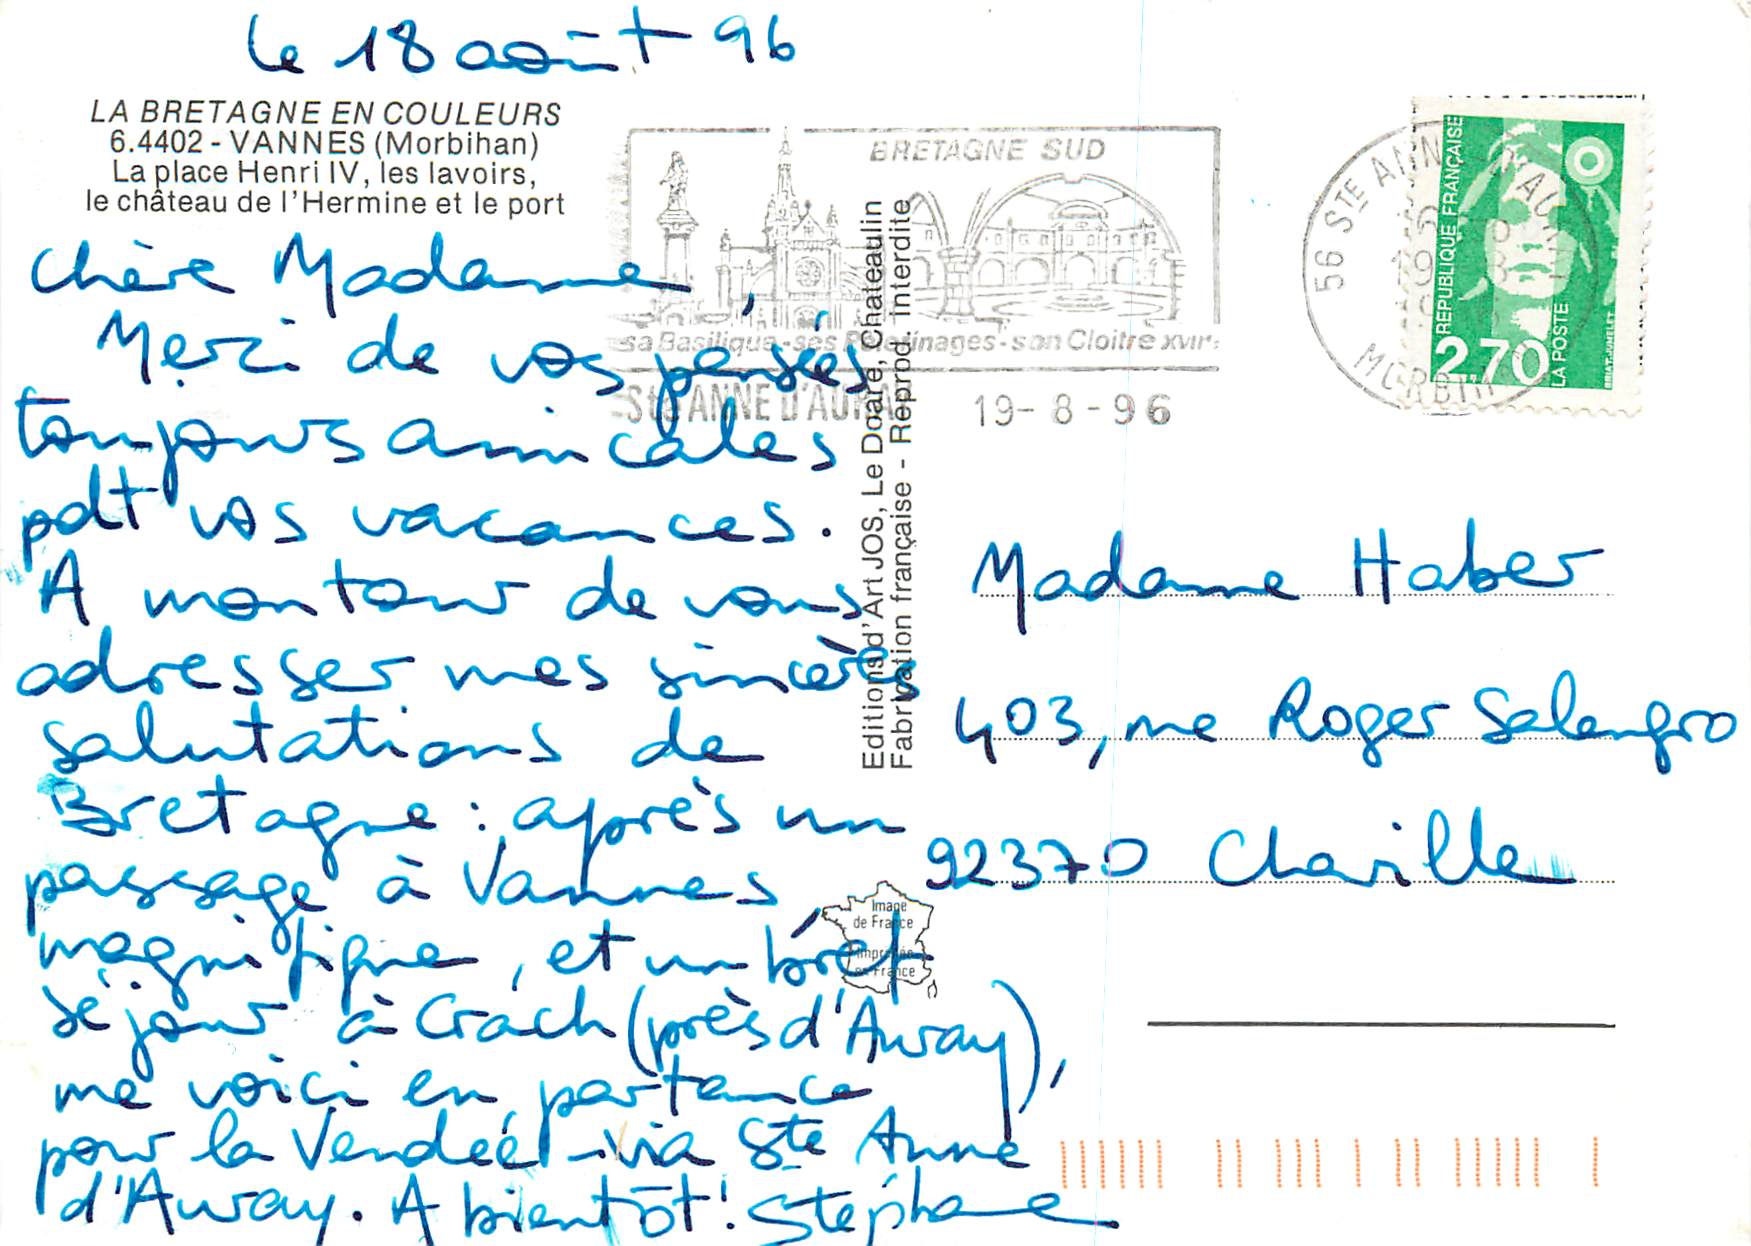 le 18 août 96
LA BRETAGNE EN COULEURS
6.4402 - VANNES (Morbihan)
La place Henri IV, les lavoirs,
le château de l'Hermine et le port
Chère Madame,
Merci de vos pensées
toujours amicales
pdt vos vacances.
A mon tour de vous
adresser mes sincères
salutations de
Bretagne : après un
passage à Vannes,
magnifique, et un bref
séjour à Crach (près d'Auray),
me voici en partance
pour la Vendée - via Ste Anne
d'Auray. A bientôt ! Stéphane
Editions d'Art JOS, Le Doaré, Chateaulin
Fabrication française - Reprod. interdite
Image
de France
Imprimée
en France
BRETAGNE SUD
sa Basilique - ses Pèlerinages - son Cloître XVIIe
Ste ANNE D'AURAY
19-8-96
56 STE ANNE D'AURAY
MORBIHAN
REPUBLIQUE FRANÇAISE
2,70
LA POSTE
Madame Haber
403, rue Roger Salengro
92370 Chaville